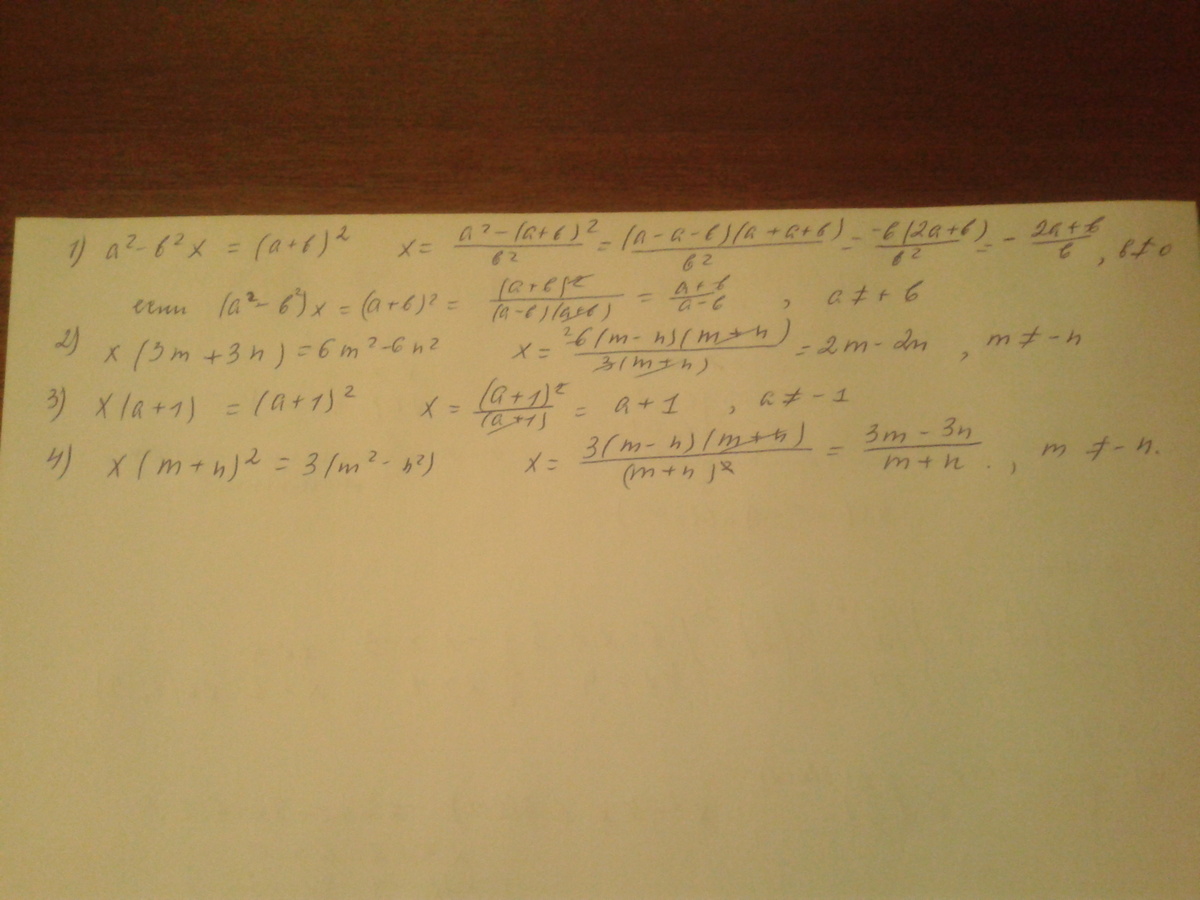 1) a² - в²x = (a+в)² x = (a² - (a+в)²)/в² = ((a-a-в)(a+a+в))/в² = (-в(2a+в))/в² = - (2a+в)/в , в ≠ 0
если (a² - в²)x = (a+в)² = (a+в)²/((a-в)(a+в)) = (a+в)/(a-в) , a ≠ + в
2) x(3m+3n) = 6m² - 6n² x = ²6(m-n)(m+n)/(3(m+n)) = 2m - 2n , m ≠ -n
3) x(a+1) = (a+1)² x = (a+1)²/(a+1) = a+1 , a ≠ -1
4) x(m+n)² = 3(m² - n²) x = 3(m-n)(m+n)/(m+n)² = (3m-3n)/(m+n) . , m ≠ -n.